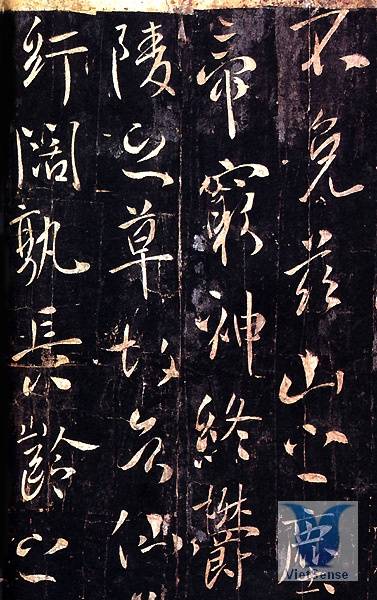 不免茲山之塵
帝窮神終鬱
陵之草故知仙
紆闊孰長齡之
VietSense